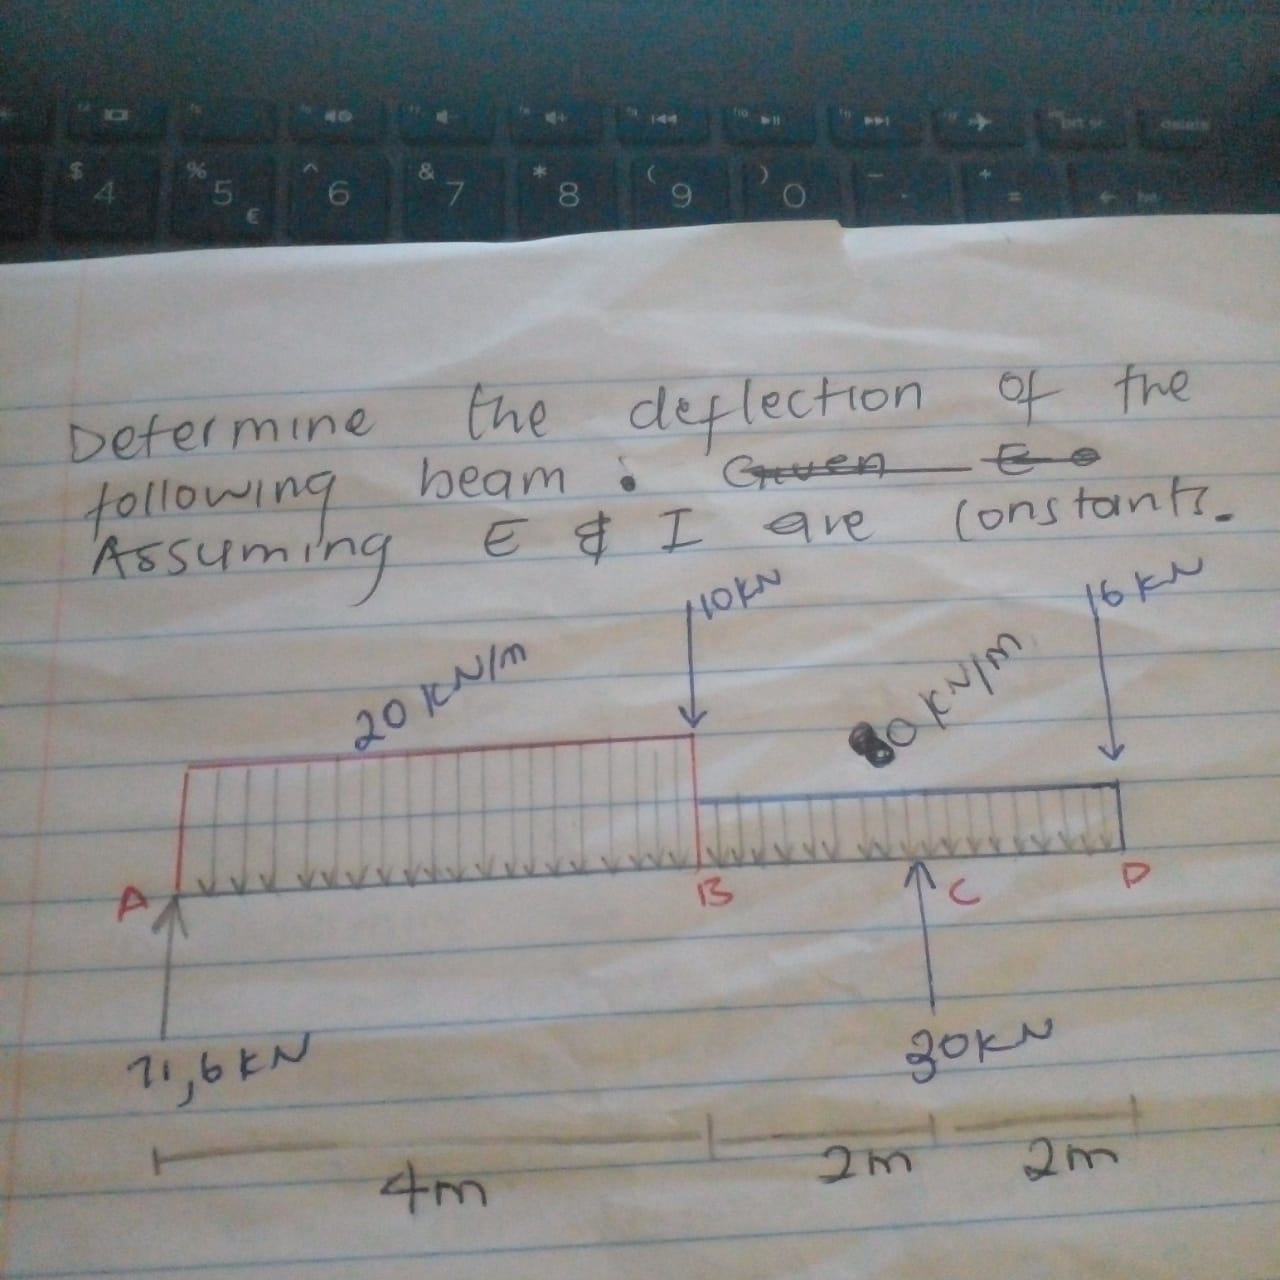 $ 4
% 5 €
^ 6
& 7
* 8
( 9
) 0
-
+ =
delete
Determine the deflection of the
following beam. Given E
Assuming E & I are constants.
10KN
16KN
20 KN/m
0 KN/m
A
B
C
D
71,6KN
30KN
4m
2m
2m